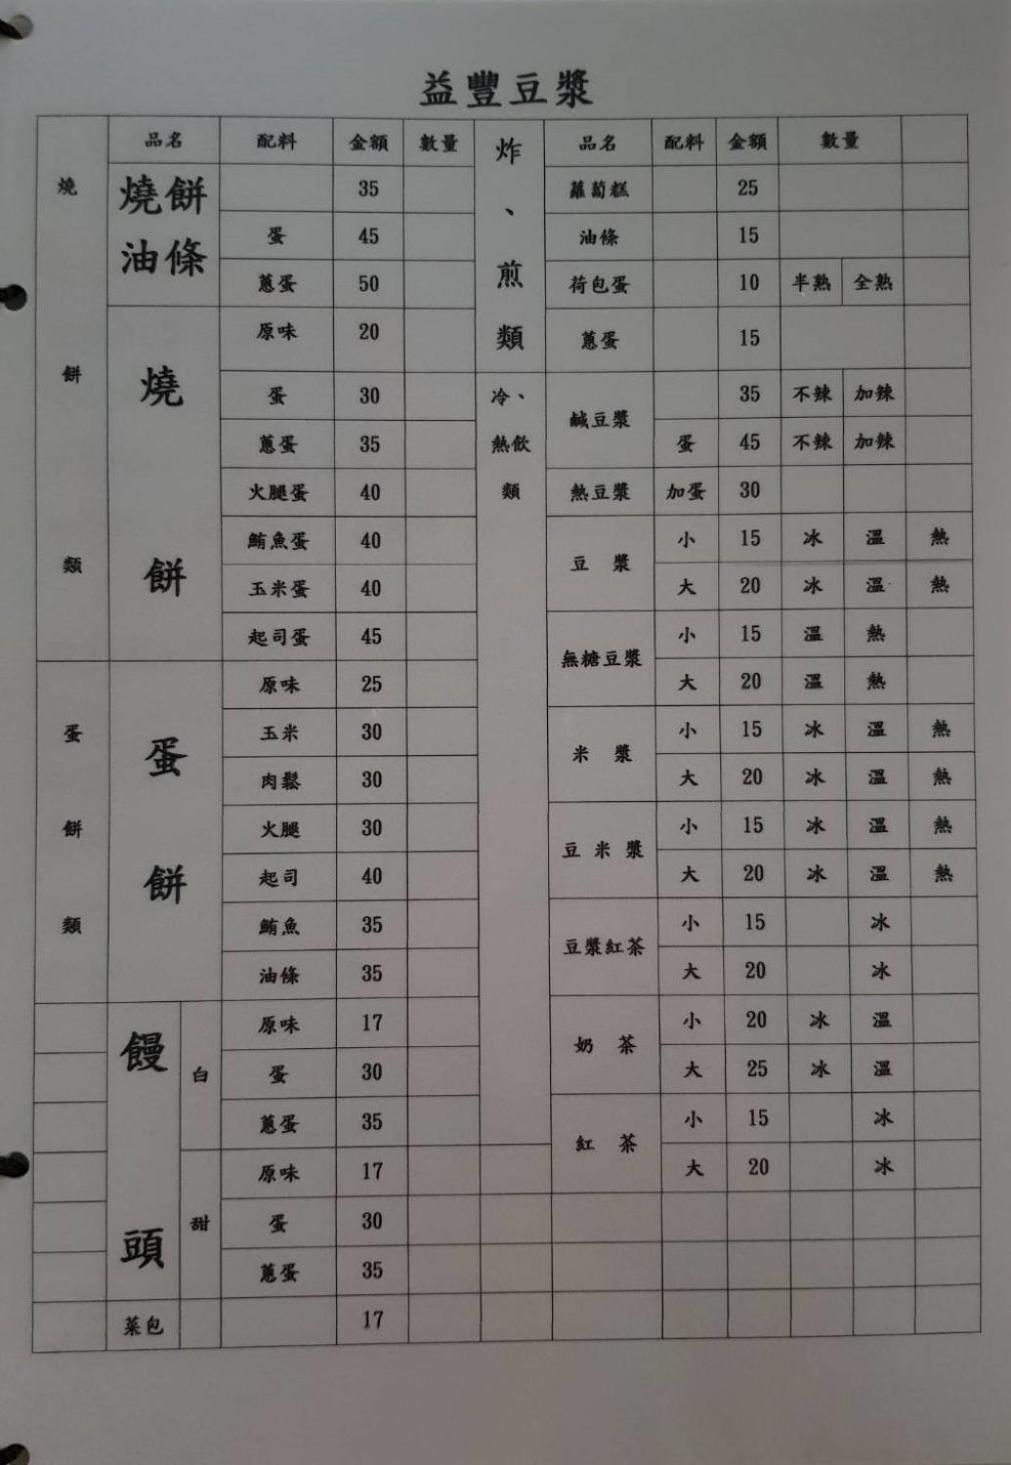 益豐豆漿
品名 配料 金額 數量 品名 配料 金額 數量
燒餅類
燒餅油條 35
蛋 45
蔥蛋 50
燒餅 原味 20
蛋 30
蔥蛋 35
火腿蛋 40
鮪魚蛋 40
玉米蛋 40
起司蛋 45
蛋餅類
蛋餅 原味 25
玉米 30
肉鬆 30
火腿 30
起司 40
鮪魚 35
油條 35
饅頭 白 原味 17
蛋 30
蔥蛋 35
甜 原味 17
蛋 30
蔥蛋 35
菜包 17
炸、煎類
蘿蔔糕 25
油條 15
荷包蛋 10 半熟 全熟
蔥蛋 15
冷、熱飲類
鹹豆漿 35 不辣 加辣
蛋 45 不辣 加辣
熱豆漿 加蛋 30
豆漿 小 15 冰 溫 熱
大 20 冰 溫 熱
無糖豆漿 小 15 溫 熱
大 20 溫 熱
米漿 小 15 冰 溫 熱
大 20 冰 溫 熱
豆米漿 小 15 冰 溫 熱
大 20 冰 溫 熱
豆漿紅茶 小 15 冰
大 20 冰
奶茶 小 20 冰 溫
大 25 冰 溫
紅茶 小 15 冰
大 20 冰